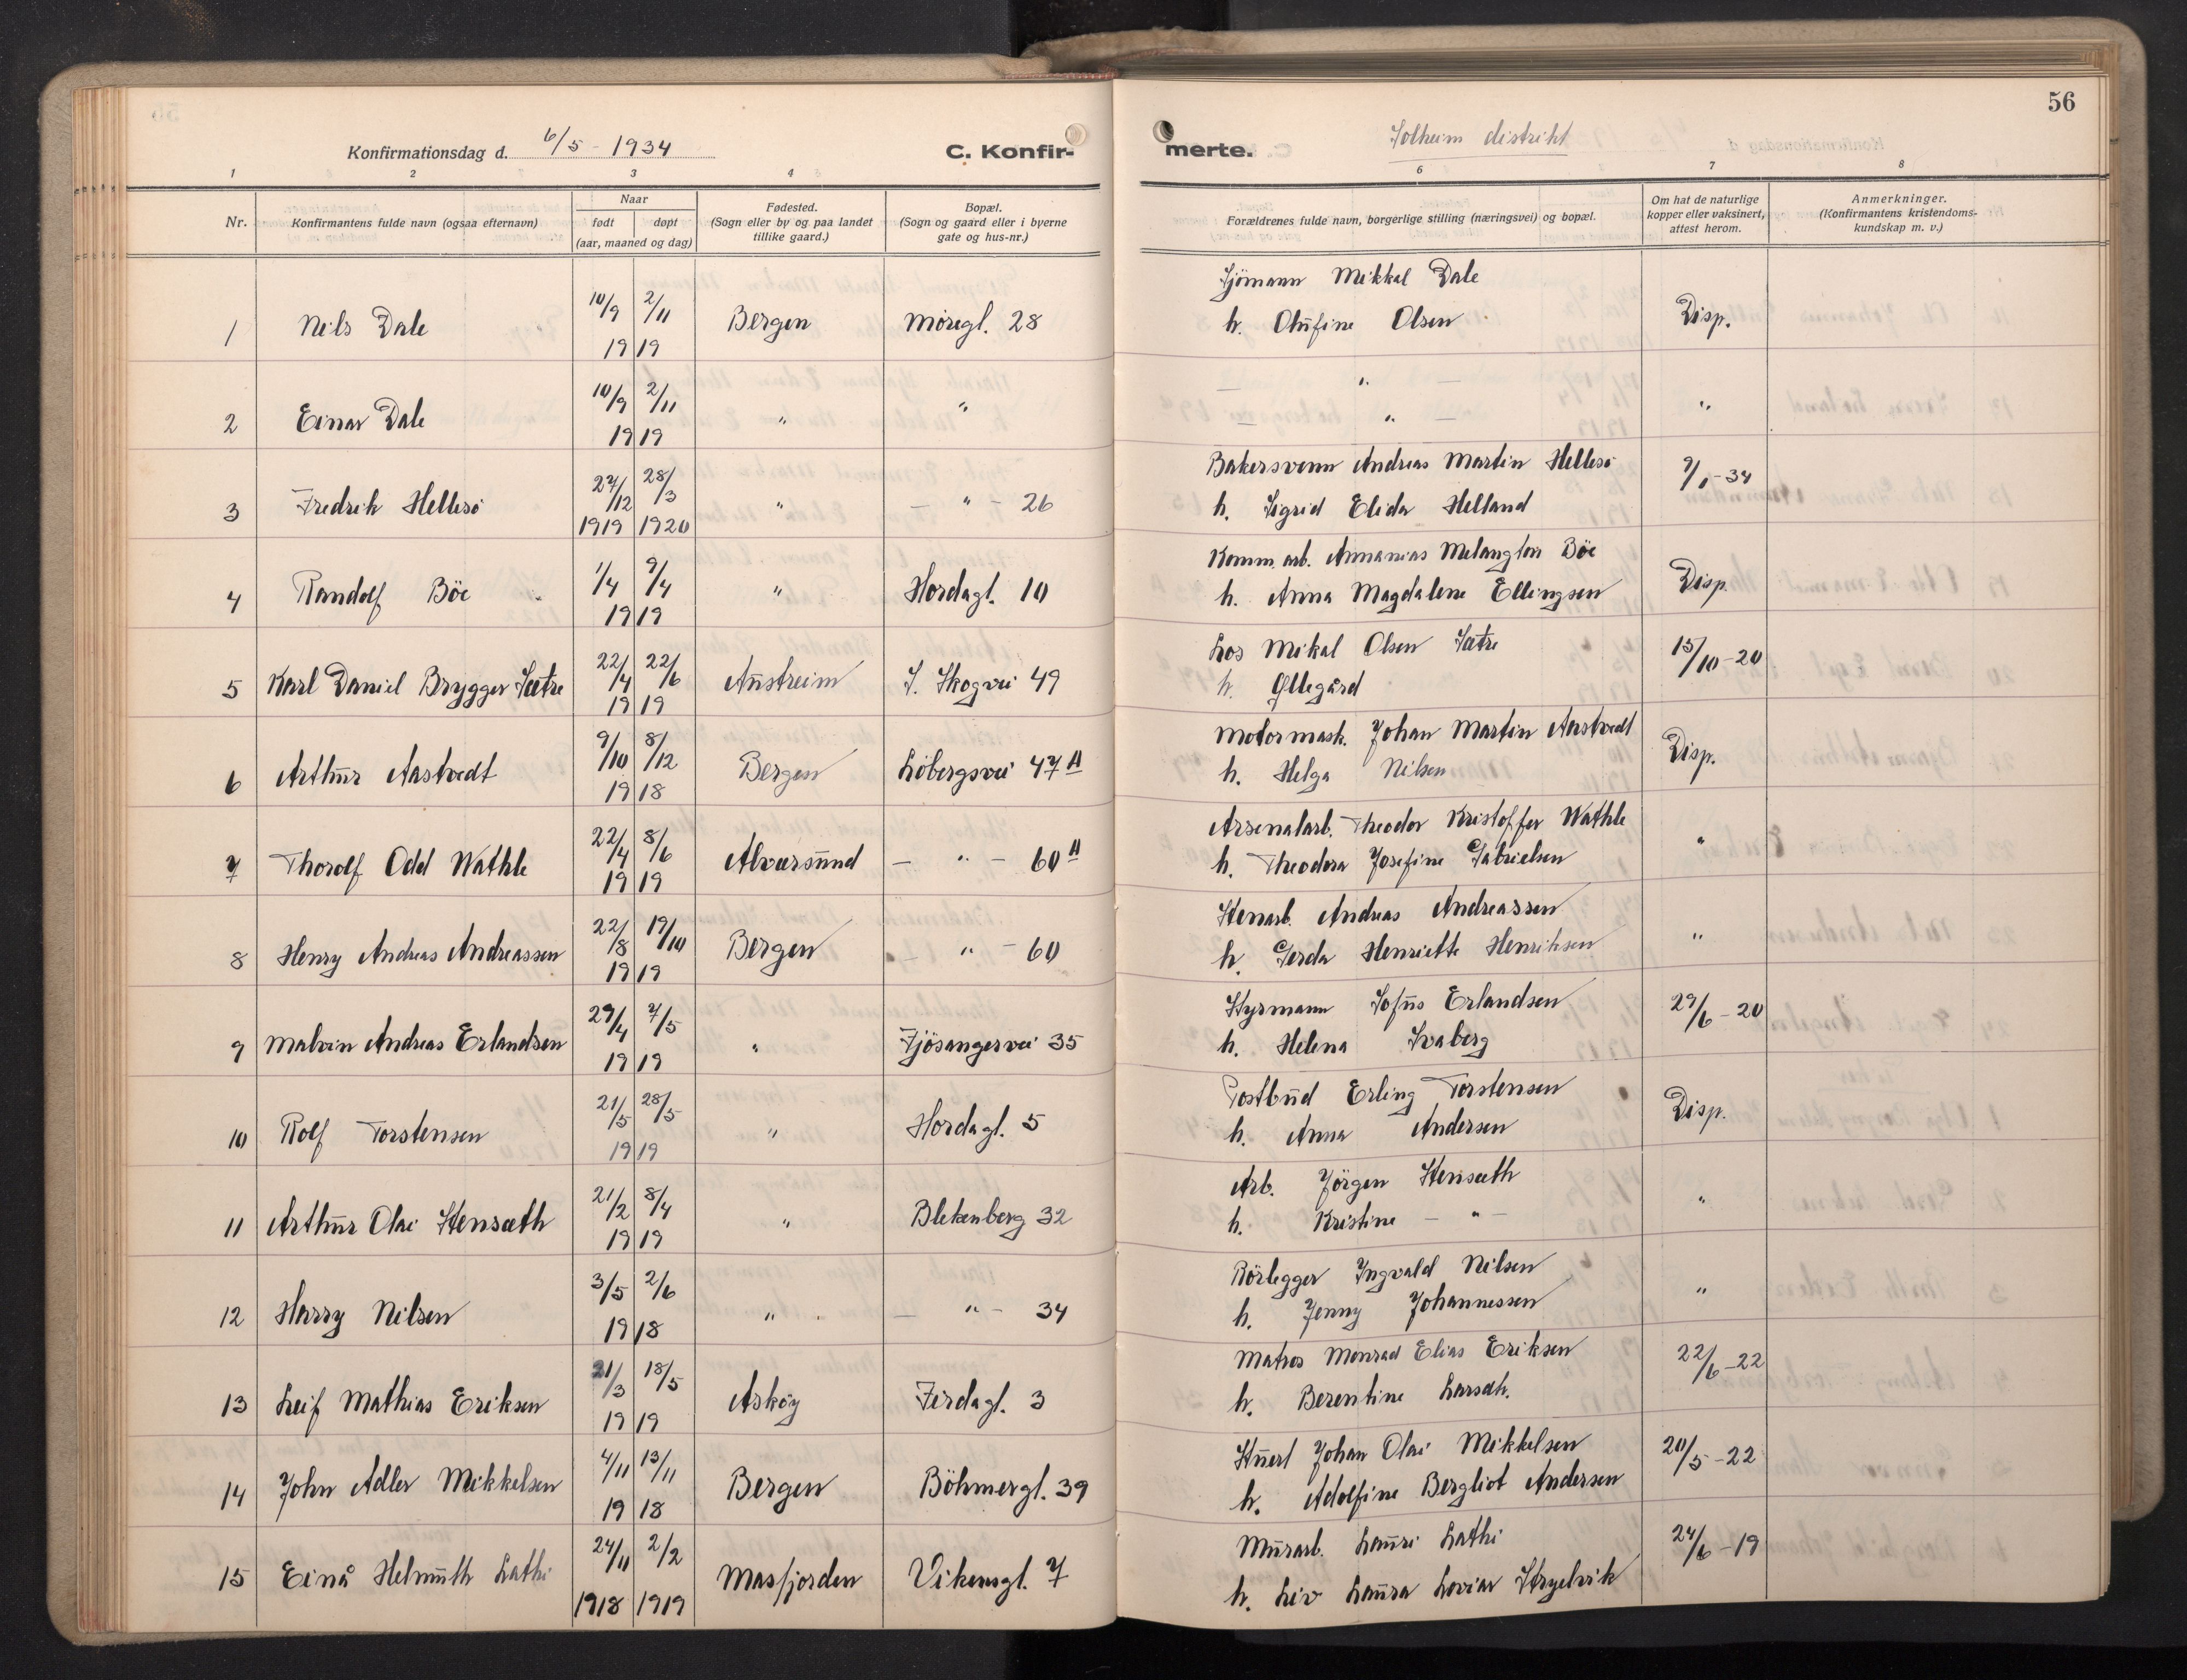 56
Konfirmationsdag d. 6/5 - 1934 C. Konfir-
merte. Solheim distrikt
1 2 3 4 6 7 8
Nr. Konfirmantens fulde navn (ogsaa efternavn) Naar født døpt (aar, maaned og dag) Fødested. (Sogn eller by og paa landet tillike gaard.) Bopæl. (Sogn og gaard eller i byerne gate og hus-nr.)
Forældrenes fulde navn, borgerlige stilling (næringsvei) og bopæl. Om hat de naturlige kopper eller vaksinert, attest herom. Anmerkninger. (Konfirmantens kristendoms-kundskap m. v.)
1 Nils Dale 10/9 2/11 1919 Bergen Möregt. 28
Sjömann Mikkal Dale
h. Olufine Olsen Disp.
2 Einar Dale 10/9 2/11 1919 " "
— " —
— " — "
3 Fredrik Hellesö 27/12 1919 28/3 1920 " — " — 26
Bakersvenn Andreas Martin Hellesö
h. Sigrid Elida Helland 9/1-34
4 Randolf Böe 1/4 9/4 1919 " Hordagt. 10
Komm. arb. Annanias Melangton Böe
h. Anna Magdalene Ellingsen Disp.
5 Karl Daniel Brygger Sætre 22/4 22/6 1919 Austreim S. Skogvei 49
Los Mikal Olsen Sætre
h. Øllegård 15/10-20
6 Arthur Aastvedt 9/10 8/12 1918 Bergen Löbergsvei 47 A
Motormask. Johan Martin Aastvedt
h. Helga Nilsen Disp.
7 Thorolf Odd Wathle 22/4 8/6 1919 Alversund — " — 60 A
Arsenalarb. Theodor Kristoffer Wathle
h. Theodora Josefine Gabrielsen "
8 Henry Andreas Andreassen 22/8 19/10 1919 Bergen — " — 60
Stenarb. Andreas Andreassen
h. Gerda Henriette Henriksen "
9 Malvin Andreas Erlandsen 29/4 7/5 1919 " Fjösangervei 35
Styrmann Sofus Erlandsen
h. Helena Svaberg 29/6-20
10 Rolf Torstensen 21/5 28/5 1919 " Hordagt. 5
Postbud Erling Torstensen
h. Anna Andersen Disp.
11 Arthur Olai Stensæth 21/2 8/4 1919 " Blekenberg 32
Arb. Jörgen Stensæth
h. Kristine — " — "
12 Harry Nilsen 3/5 2/6 1918 " — " — 34
Rörlegger Ingvald Nilsen
h. Jenny Johannessen "
13 Leif Mathias Eriksen 21/3 18/5 1919 Asköy Firdagt. 3
Matros Monrad Elias Eriksen
h. Berentine Larsdt. 22/6-22
14 John Adler Mikkelsen 4/11 13/11 1918 Bergen Böhmergt. 39
Stuert Johan Olai Mikkelsen
h. Adolfine Bergliot Andersen 20/5-22
15 Einå Helmuth Lathi 24/11 1918 2/2 1919 Masfjorden Vikensgt. 7
Murarb. Lauri Lathi
h. Liv Laura Lovise 24/6-19